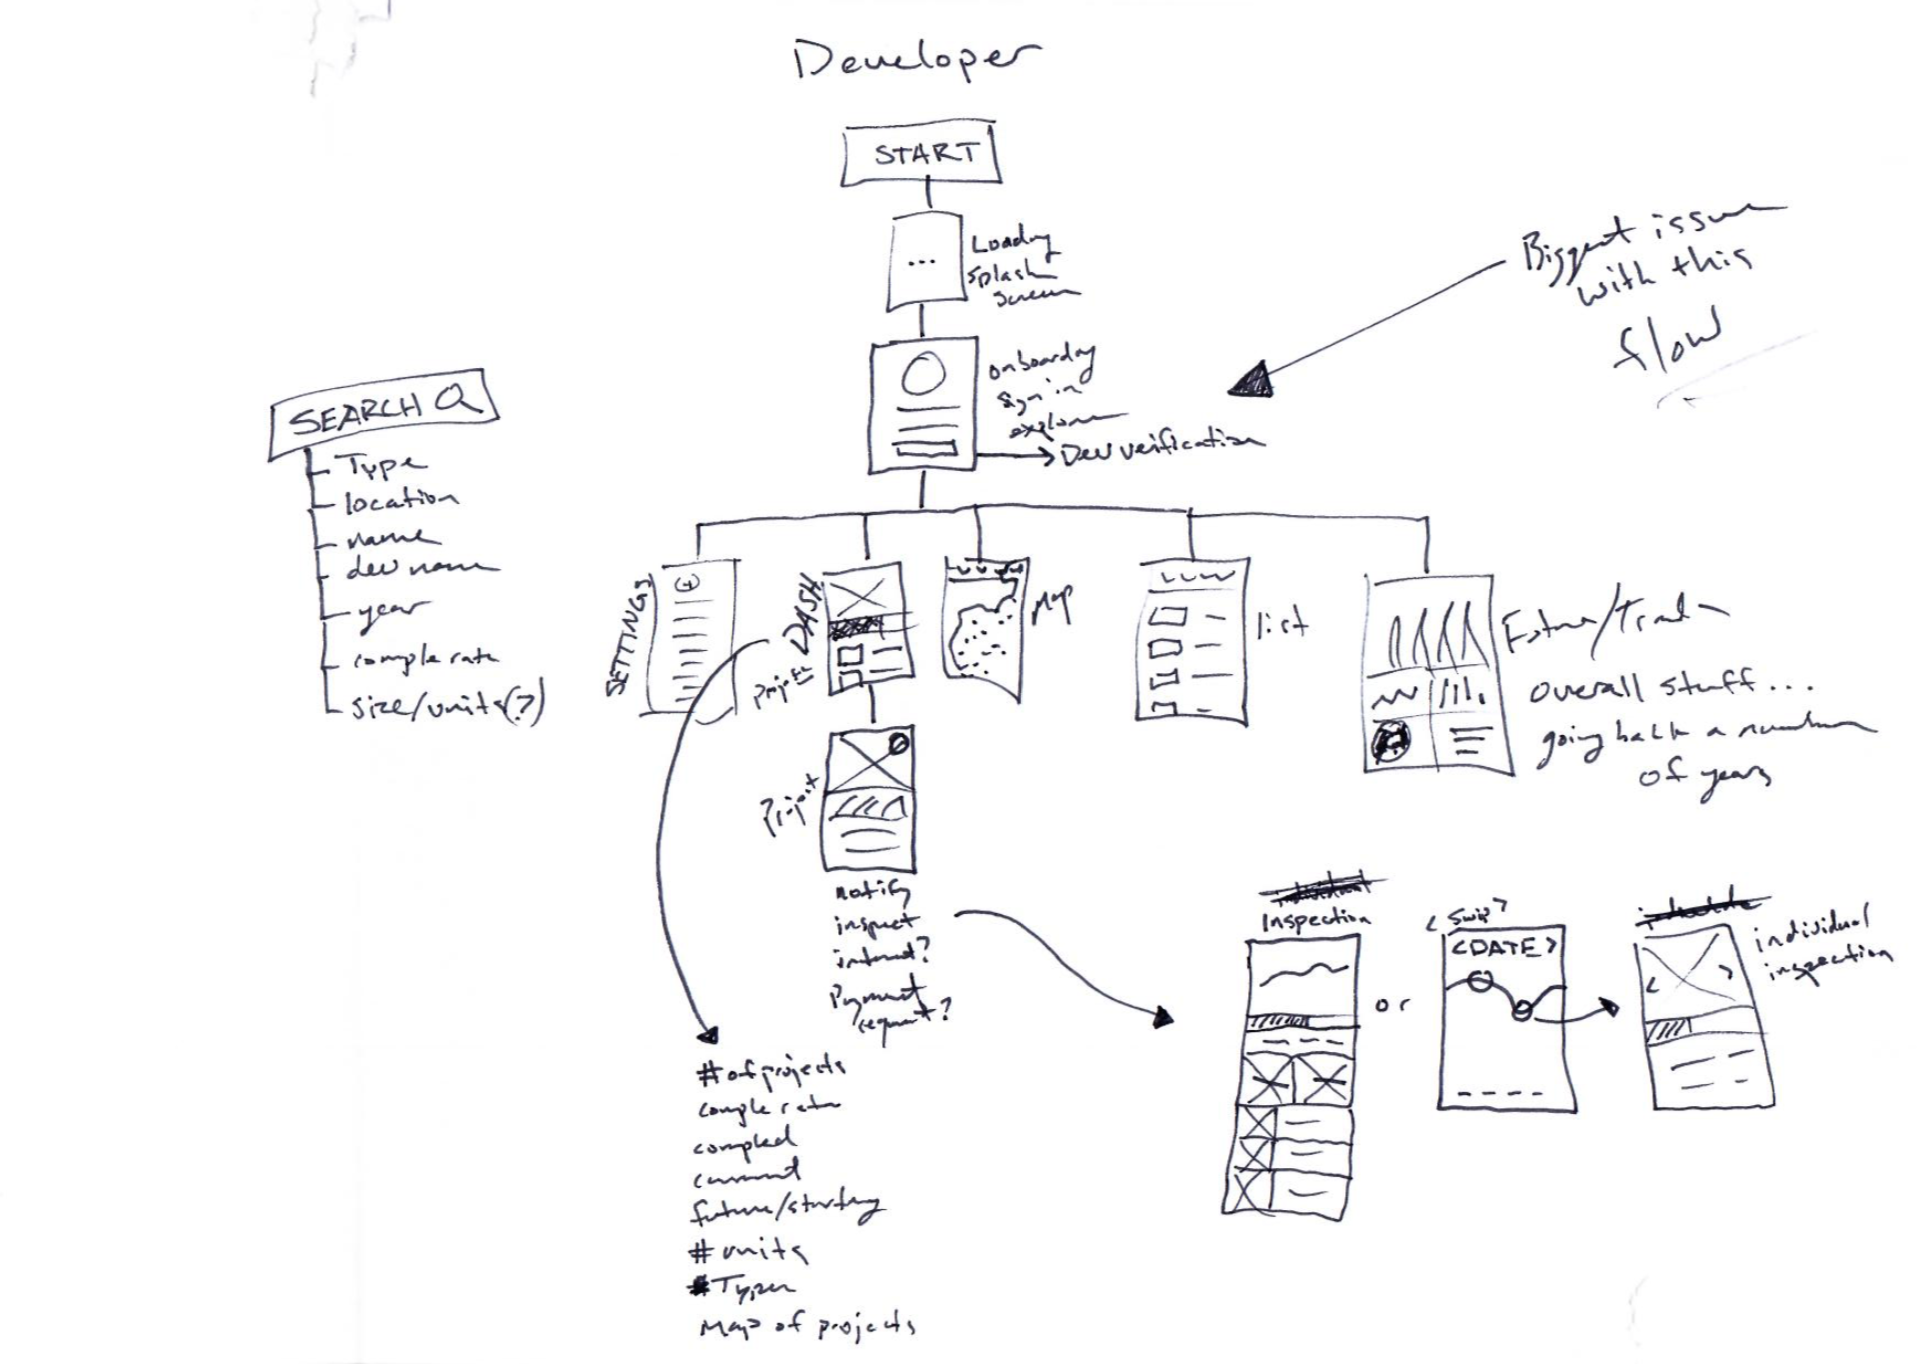 Developer
START
...
Loading
splash
screen
Biggest issue
with this
flow
onboarding
sign in
explore
Dev verification
SEARCH
Type
location
name
dev name
year
comple rate
size/units(?)
SETTINGS
DASH
projects
Map
list
/Trends
overall stuff...
going back a number
of years
Project
notify
inspect
interest?
Payment
request?
individual
Inspection
or
< swip >
<DATE>
individual
inspection
# of projects
comple rate
compled
current
future/starting
# units
# Types
Map of projects